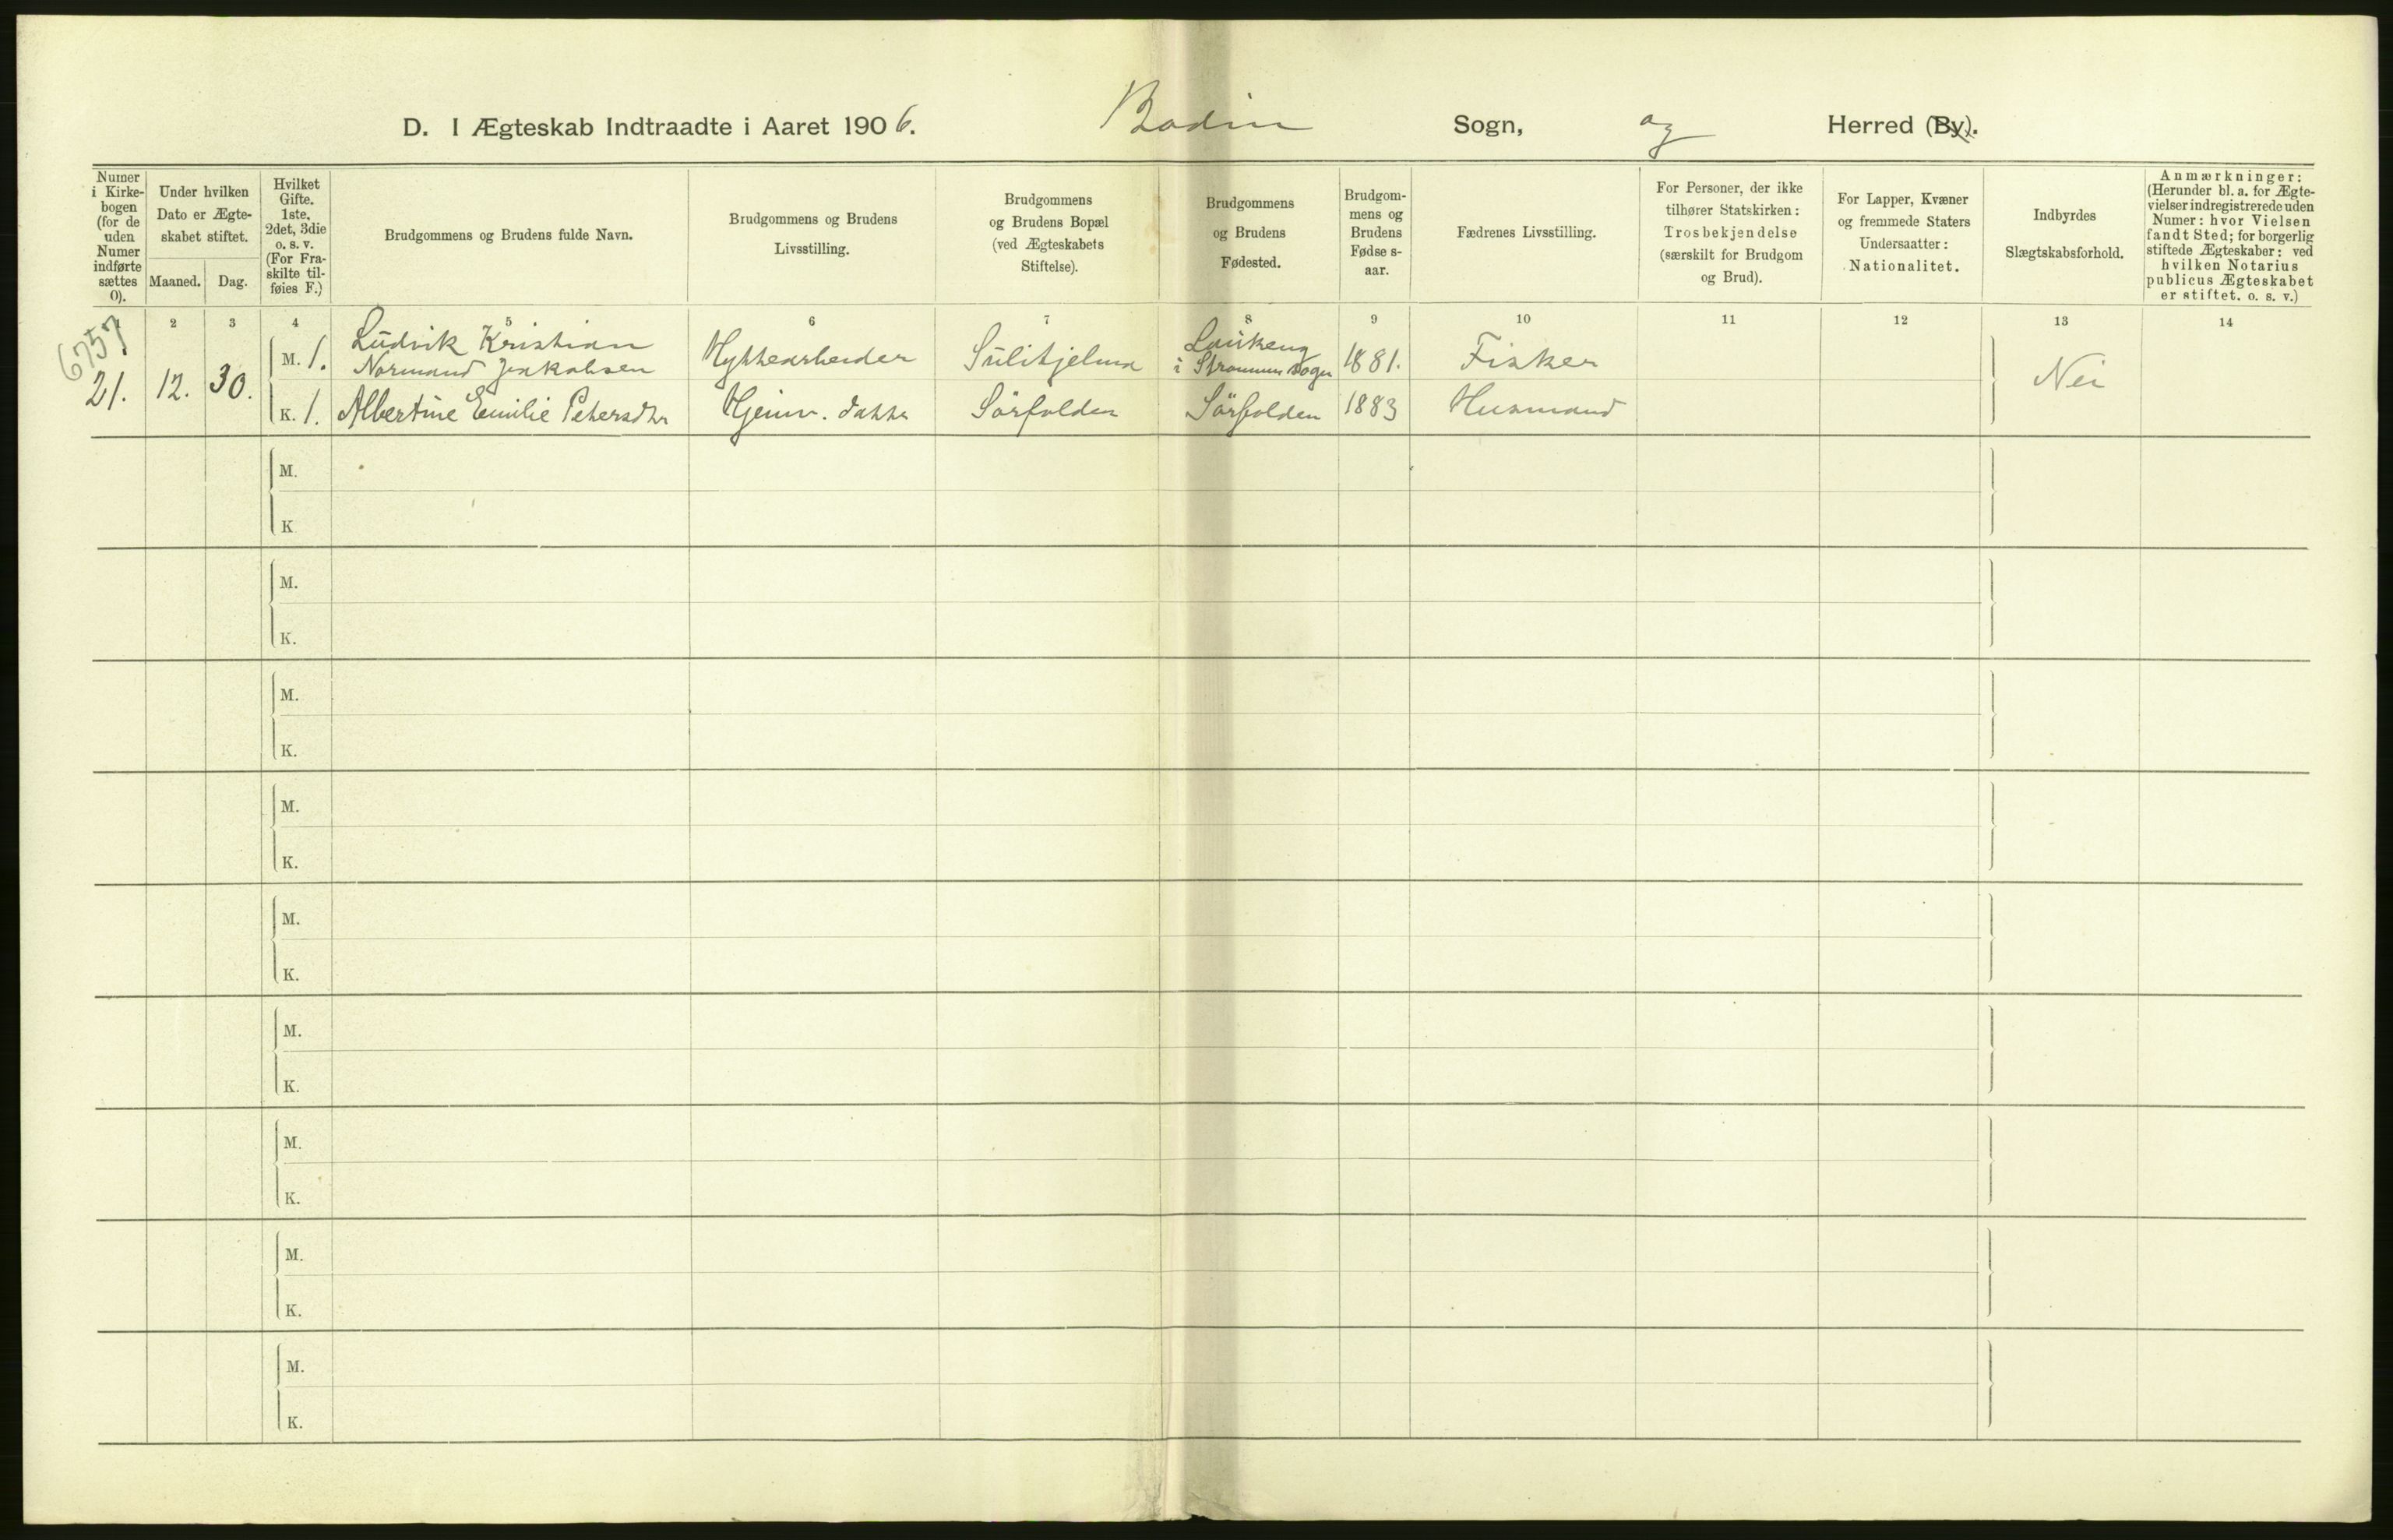 D. I Ægteskab Indtraadte i Aaret 1906. Bodin Sogn, og Herred (By).
Numer i Kirke-bogen (for de uden Numer indførte sættes 0).
Under hvilken Dato er Ægte-skabet stiftet.
Maaned. Dag.
Hvilket Gifte. 1ste, 2det, 3die o. s. v. (For Fra-skilte til-føies F.)
Brudgommens og Brudens fulde Navn.
Brudgommens og Brudens Livsstilling.
Brudgommens og Brudens Bopæl (ved Ægteskabets Stiftelse).
Brudgommens og Brudens Fødested.
Brudgom-mens og Brudens Fødse s-aar.
Fædrenes Livsstilling.
For Personer, der ikke tilhører Statskirken: Trosbekjendelse (særskilt for Brudgom og Brud).
For Lapper, Kvæner og fremmede Staters Undersaatter: Nationalitet.
Indbyrdes Slægtskabsforhold.
Anmærkninger: (Herunder bl. a. for Ægte-vielser indregistrerede uden Numer: hvor Vielsen fandt Sted; for borgerlig stiftede Ægteskaber: ved hvilken Notarius publicus Ægteskabet er stiftet. o. s. v.)
1 2 3 4 5 6 7 8 9 10 11 12 13 14
6757
21. 12. 30.
M. 1. Ludvik Kristian Normand Jakobsen Hyttearbeider Sulitjelma Laukeng i Strømmen sogn 1881. Fisker Nei
K. 1. Albertine Emilie Petersdtr Hjemv. datter Sörfolden Sörfolden 1883 Husmand
M.
K
M.
K.
M.
K.
M.
K.
M.
K.
M.
K.
M.
K.
M.
K.
M.
K.